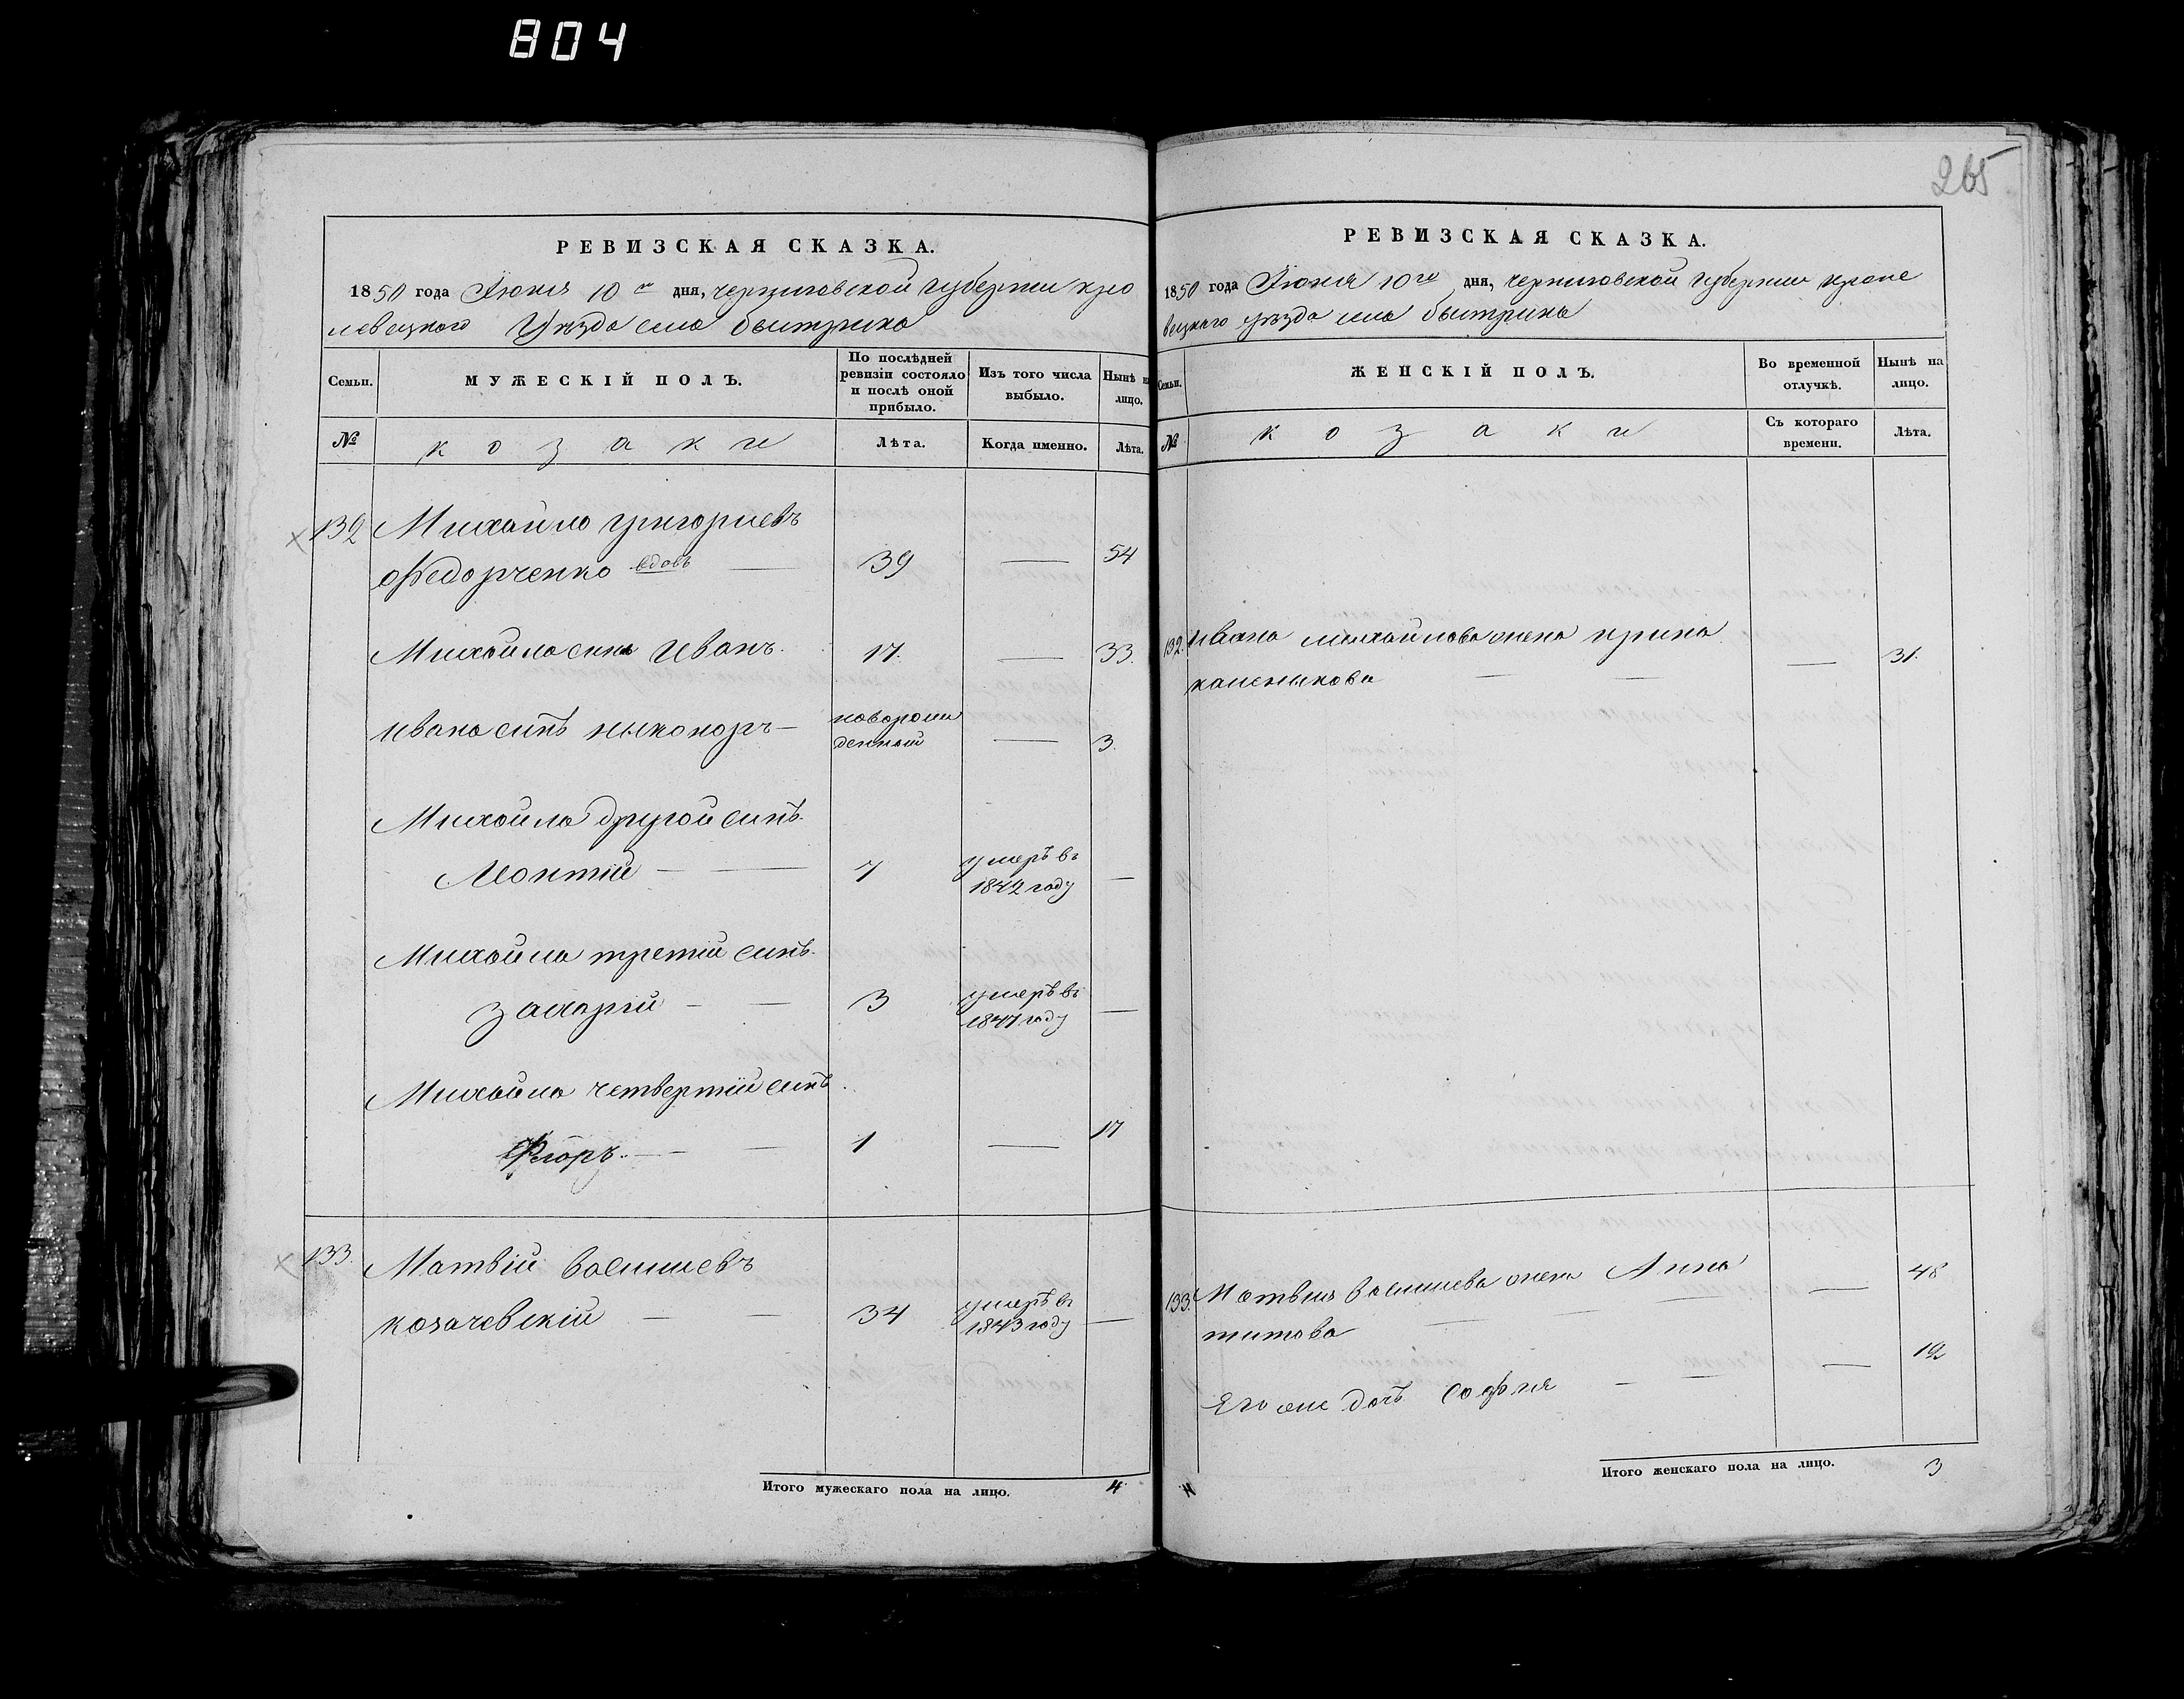 804
265
РЕВИЗСКАЯ СКАЗКА.
1850 года Июня 10го дня, черниговской губернии кро
левецкого Уезда села быстрика
Семьи.
МУЖЕСКІЙ ПОЛЪ.
По послѣдней ревизіи состояло и послѣ оной прибыло.
Изъ того числа выбыло.
Нынѣ на лицо.
№
козаки
Лѣта.
Когда именно.
Лѣта.
132 Михайло григориевъ
Федорченко вдовъ — 39 — 54
Михайла синъ Иванъ. 17. — 33.
Ивана синъ никоноръ — новорожденный — 3.
Михайла другой синъ.
Леонтій — 7 умеръ въ 1842 году —
Михайла третій синъ.
Захарій — 3 умеръ въ 1847 году —
Михайла четвертій синъ.
Флоръ. — 1 — 17
133. Матвій васильевъ
козачевскій — 34 умеръ въ 1843 году —
Итого мужескаго пола на лицо. 4
РЕВИЗСКАЯ СКАЗКА.
1850 года Июня 10го дня, черниговской губернии кроле
вецкаго уѣзда села быстрика
Семьи.
ЖЕНСКІЙ ПОЛЪ.
Во временной отлучкѣ.
Нынѣ на лицо.
№
козаки
Съ котораго времени.
Лѣта.
132. Ивана михайлова жена ирина
— 31.
133. Матвея васильева жена Анна — 48
титова
Его же дочь софия — 12
Итого женскаго пола на лицо. 3